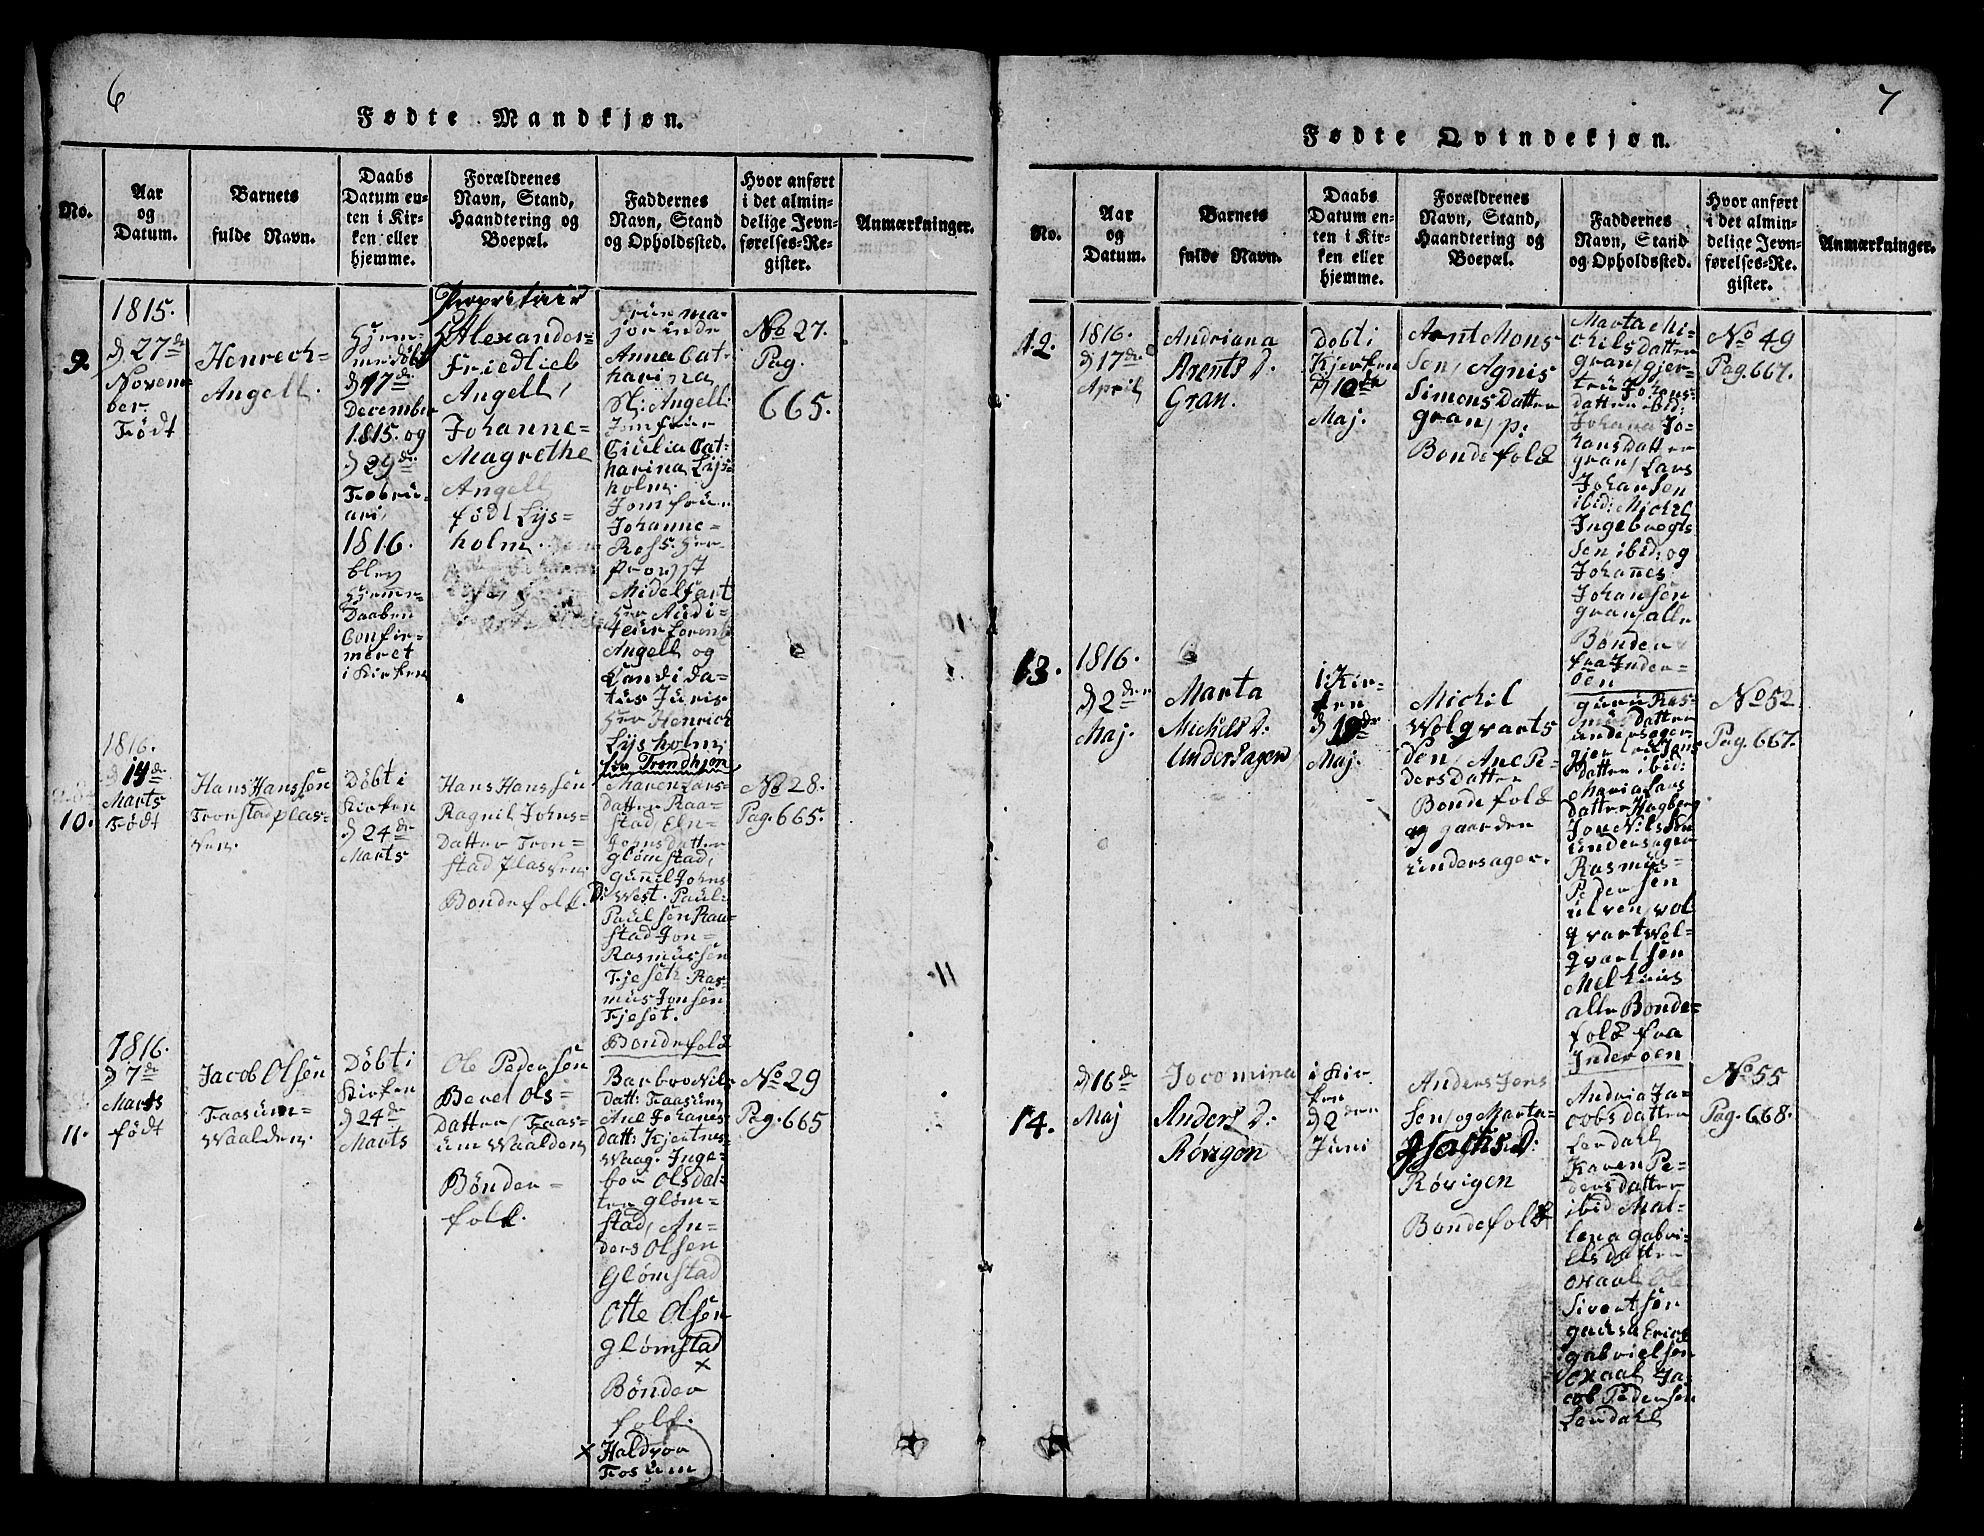 6
Fødte Mandkjøn.
No.
Aar
og
Datum.
Barnets
fulde Navn.
Daabs
Datum en-
ten i Kir-
ken eller
hjemme.
Forældrenes
Navn, Stand,
Haandtering og
Boepæl.
Faddernes
Navn, Stand
og Opholdssted.
Hvor anført
i det almin-
delige Jevn-
førelses-Re-
gister.
Anmærkninger.
9.
1815.
d 27de
Novem-
ber.
Födt
Henrech
Angell.
Hjem-
medöbt
d 17de
December
1815. og
d 29de
Februi-
ari,
1816.
blev
Hjemme-
Daaben
Confir-
meret
i Kirken
Proprietair
Alexander
Friedlieb
Angell,
Johanne-
Magrethe
Angell
født Lys-
holm.
Frue ma-
jorinde
Anna Cat-
harina
Sl: Angell
Jomfrue
Ciulia Cat-
harina Lys-
holm.
Jomfrue
Johanne-
Ross. Her
Provst
Midelfart
Her Audi-
teur Lorents
Angell og
Candida-
tus Juris
Her Henrich
Lysholm
fra Trondhjem
No 27.
Pag.
665.
10.
1816.
d 14de
Marts
Födt
Hans Hanssen
Tronstadplas-
sen.
Döbt i
Kirken
d 24de
Marts
Hans Hanssen
Ragnil Johns-
Datter Tron-
stad plassen
Bondefolk.
Maren Lars-
datter Raa-
stad, Eln-
Jonsdatter
Glømstad,
Gunnil Johns
D: West. Paul
Paulsen Raa-
stad Jon-
Rasmussen
Fjeset. Ras-
mus Jonsen
Fjeset.
Bondefolk
No 28.
Pag. 665.
11.
1816.
d 7de
Marts
födt
Jacob Olsen
Faasum-
Waalden.
Döbt i
Kirken
d 24de
Marts
Ole Pedersen
Berel Ols-
Datter, Faas-
um Waalden
Bønder-
folk.
Barbro Nils
Datt: Faasum
Ane Johanes
datt: Kjertnes-
Waag. Inge-
bor Olsdat-
ter Glöm-
stad, An-
ders Olsen
Glømstad
Otte Olsen
Glømstad
×
Bønder
folk.
× Haldvor
Fosum
No 29
Pag. 665
7
Fødte Qvindekjøn.
No.
Aar
og
Datum.
Barnets
fulde Navn.
Daabs
Datum en-
ten i Kir-
ken eller
hjemme.
Forældrenes
Navn, Stand,
Haandtering og
Boepæl.
Faddernes
Navn, Stand
og Opholdssted.
Hvor anført
i det almin-
delige Jevn-
førelses-Re-
gister.
Anmærkninger.
12.
1816.
d 17de
April
Andriana
Arents D.
Gran.
Døbt i
Kjerken
Maj.
Arnt Mons
sen, Agnis
Simons Datter
gran, p:
Bondefolk
Marta Mi-
chils datter
gran, gjer-
tru Johans-
datter ibid:
Johana Jo-
hansdatter
gran, Lars
Johansen
ibid: Michel
Ingebregts
sen ibid: og
Johanes
Johansen
gran, alle
Bønder
fra Inder-
öen
No 49
Pag. 667.
13.
1816.
d 2den
Maj.
Marta
Michels D:
Undersager
i Kir-
ken
d 19de
Maj.
Michil
Wolqvarts
sen, Ane Pe-
dersdatter
Bondefolk
og gaarden
undersager.
guru Ras-
mus datter
undersager
gjertrud Jons
datter ibid:
Maria Lars
datter Hagberg
Jon Nilssön
undersager
Rasmus-
Pedersen
ulven, vol
qvart Wol-
qvartsen
Melhuus
alle Bonde-
folk fra
Inderøen
No 52
Pag. 667.
14.
d 16de
Maj
Jocomina
Anders D:
Røvigen
i Kir
ken
d 2den
Juni
Anders Jens
sen, og Marta
Isachs D:
Røvigen
Bondefolk
Andria Ja-
cobsdatter
Lerdahl
Karen Pe-
dersdatter
ibid Mal-
lena gabri-
elsdatter
oxaal Ole
Sivertsen
gausa Erick
gabrielsen
oxaal Ja-
cob Pedersen
Lerdahl
No 55
Pag. 668.